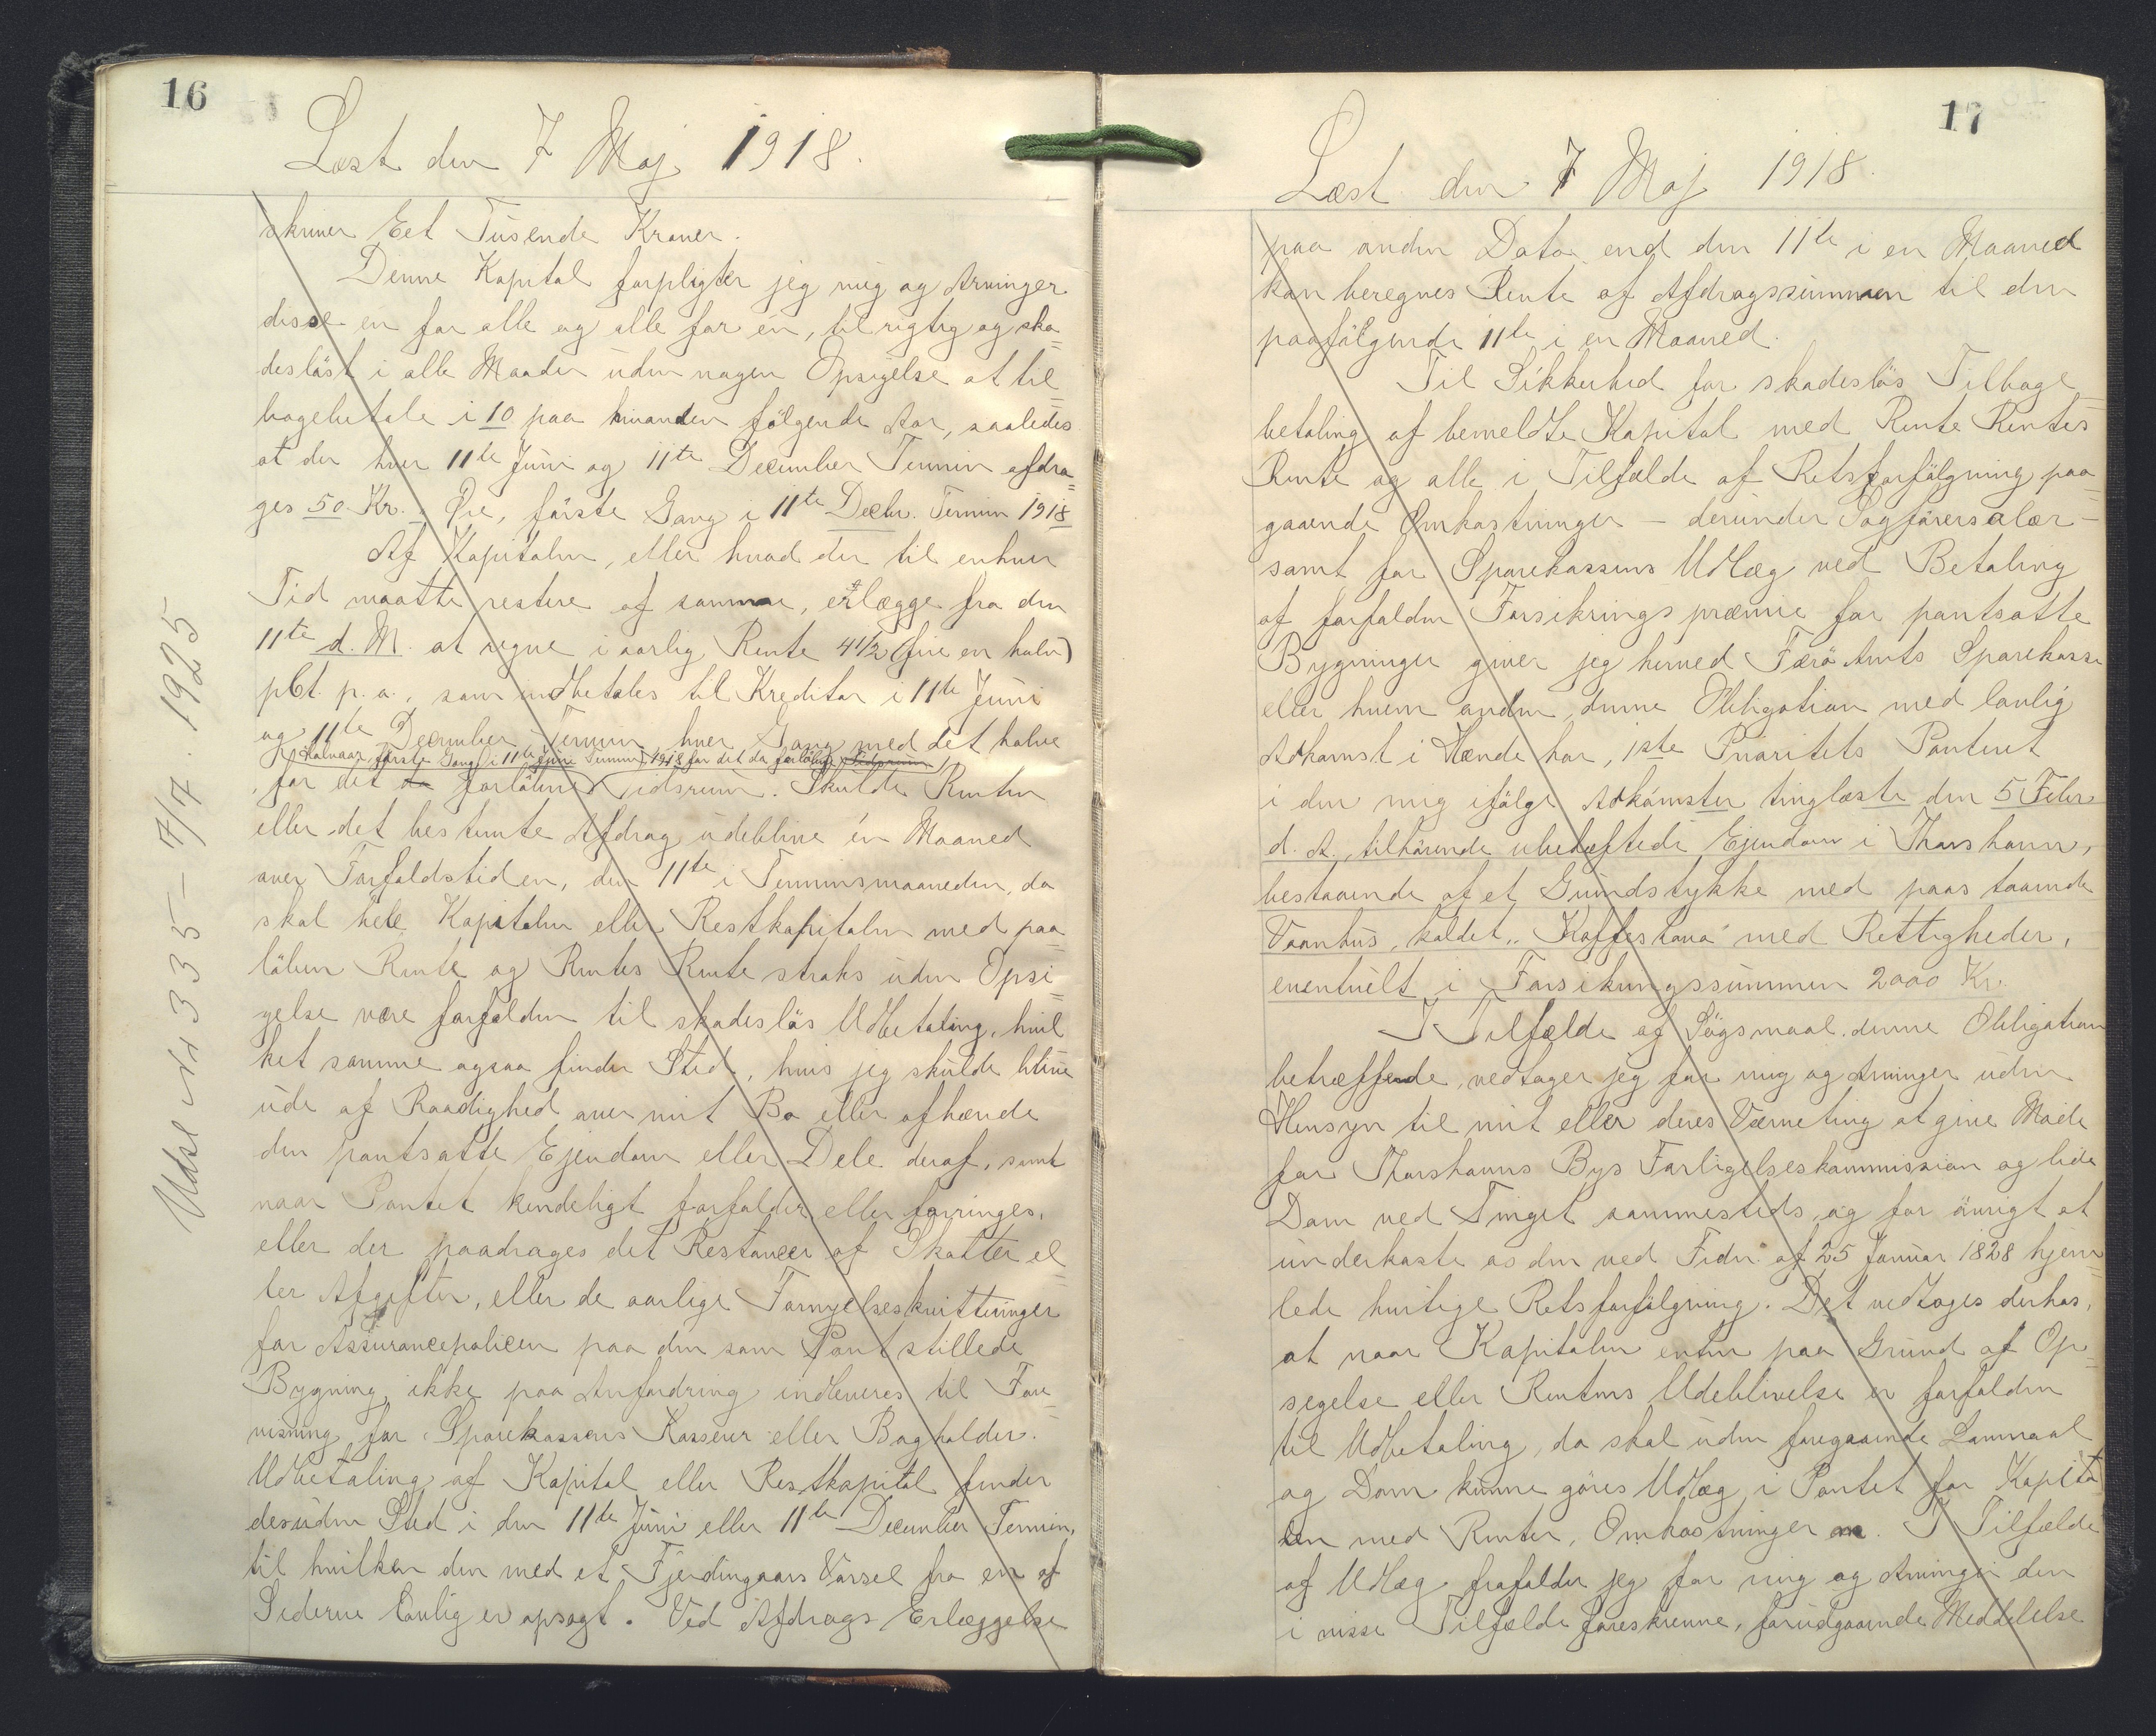 16
Læst den 7 Maj 1918.
skriver Eet Tusende Kroner.
Denne Kapital forpligter jeg mig og Arvinger
disse en for alle og alle for en, til rigtig og ska=
desløst i alle Maader uden nogen Opsigelse at til=
bagebetale i 10 paa hinanden følgende Aar, saaledes
at der hver 11te Juni og 11te December Termin afdra=
ges 50 Kr. - Øre, første Gang i 11te Decbr. Termin 1918
Af Kapitalen, eller hvad der til enhver
Tid maatte restere af samme, erlægge fra den
11te d. M. at regne i aarlig Rente 4 1/2 (fire en halv)
pCt. p. a., som indbetales til Kreditor i 11te Juni
og 11te December Termin hver Gang med det halve
Halvaar, første Gang i 11te Juni Termin 1918 for det da forløbne Tidsrum
for det da forløbne Tidsrum. Skulde Renten
eller det bestemte Afdrag udeblive én Maaned
over Forfaldstiden, den 11te i Terminsmaaneden, da
skal hele Kapitalen eller Restkapitalen med paa=
løben Rente og Rentes Rente straks uden Opsi=
gelse være forfalden til skadesløs Udbetaling, hvil=
ket samme ogsaa finder Sted, hvis jeg skulde blive
ude af Raadighed over mit Bo eller afhænde
den pantsatte Ejendom eller Dele deraf, samt
naar Pantet kendeligt forfalder eller forringes,
eller der paadrages det Restancer af Skatter el=
ler Afgifter, eller de aarlige Fornyelseskvitteringer
for Assurancepolicen paa den som Pant stillede
Bygning ikke paa Anfordring indleveres til Fore=
visning for Sparekassens Kasserer eller Bogholder.
Udbetaling af Kapital eller Restkapital finder
desuden Sted i den 11te Juni eller 11te December Termin,
til hvilken den med et Fjerdingaars Varsel fra en af
Siderne lovlig er opsagt. Ved Afdrags Erlæggelse
Udsl. Nr 335 - 7/7. 1925
17
Læst den 7 Maj 1918.
paa anden Dato end den 11te i en Maaned
kan beregnes Rente af Afdragssummen til den
paafølgende 11te i en Maaned.
Til Sikkerhed for skadesløs Tilbage=
betaling af bemeldte Kapital med Rente Rentes
Rente og alle i Tilfælde af Retsforfølgning paa=
gaaende Omkostninger - derunder Sagførersalær -
samt for Sparekassens Udlæg ved Betaling
af forfalden Forsikringspræmie for pantsatte
Bygninger giver jeg herved Færø Amts Sparekasse
eller hvem anden, denne Obligation med lovlig
Adkomst i Hænde har, 1ste Prioritets Panteret
i den mig ifølge Adkomster tinglæste den 5 Febr.
d. A. tilhørende ubehæftede Ejendom i Thorshavn,
bestaaende af et Grundstykke med paastaaende
Vaanhus, kaldet „Kaffestova" med Rettigheder,
eventuelt i Forsikringssummen 2000 Kr.
I Tilfælde af Søgsmaal denne Obligation
betræffende, vedtager jeg for mig og Arvinger uden
Hensyn til mit eller deres Værneting at give Møde
for Thorshavns Bys Forligelseskommission og lide
Dom ved Tinget sammesteds, og for øvrigt at
underkaste os den ved Frdn. af 25 Januar 1828 hjem=
lede hurtige Retsforfølgning. Det vedtages derhos,
at naar Kapitalen enten paa Grund af Op=
sigelse eller Rentens Udeblivelse er forfalden
til Udbetaling, da skal uden foregaaende Lovmaal
og Dom kunne gøres Udlæg i Pantet for Kapita
len med Renter, Omkostninger m. I Tilfælde
af Udlæg frafalder jeg for mig og Arvinger den
i visse Tilfælde foreskrevne, forudgaaende Meddelelse